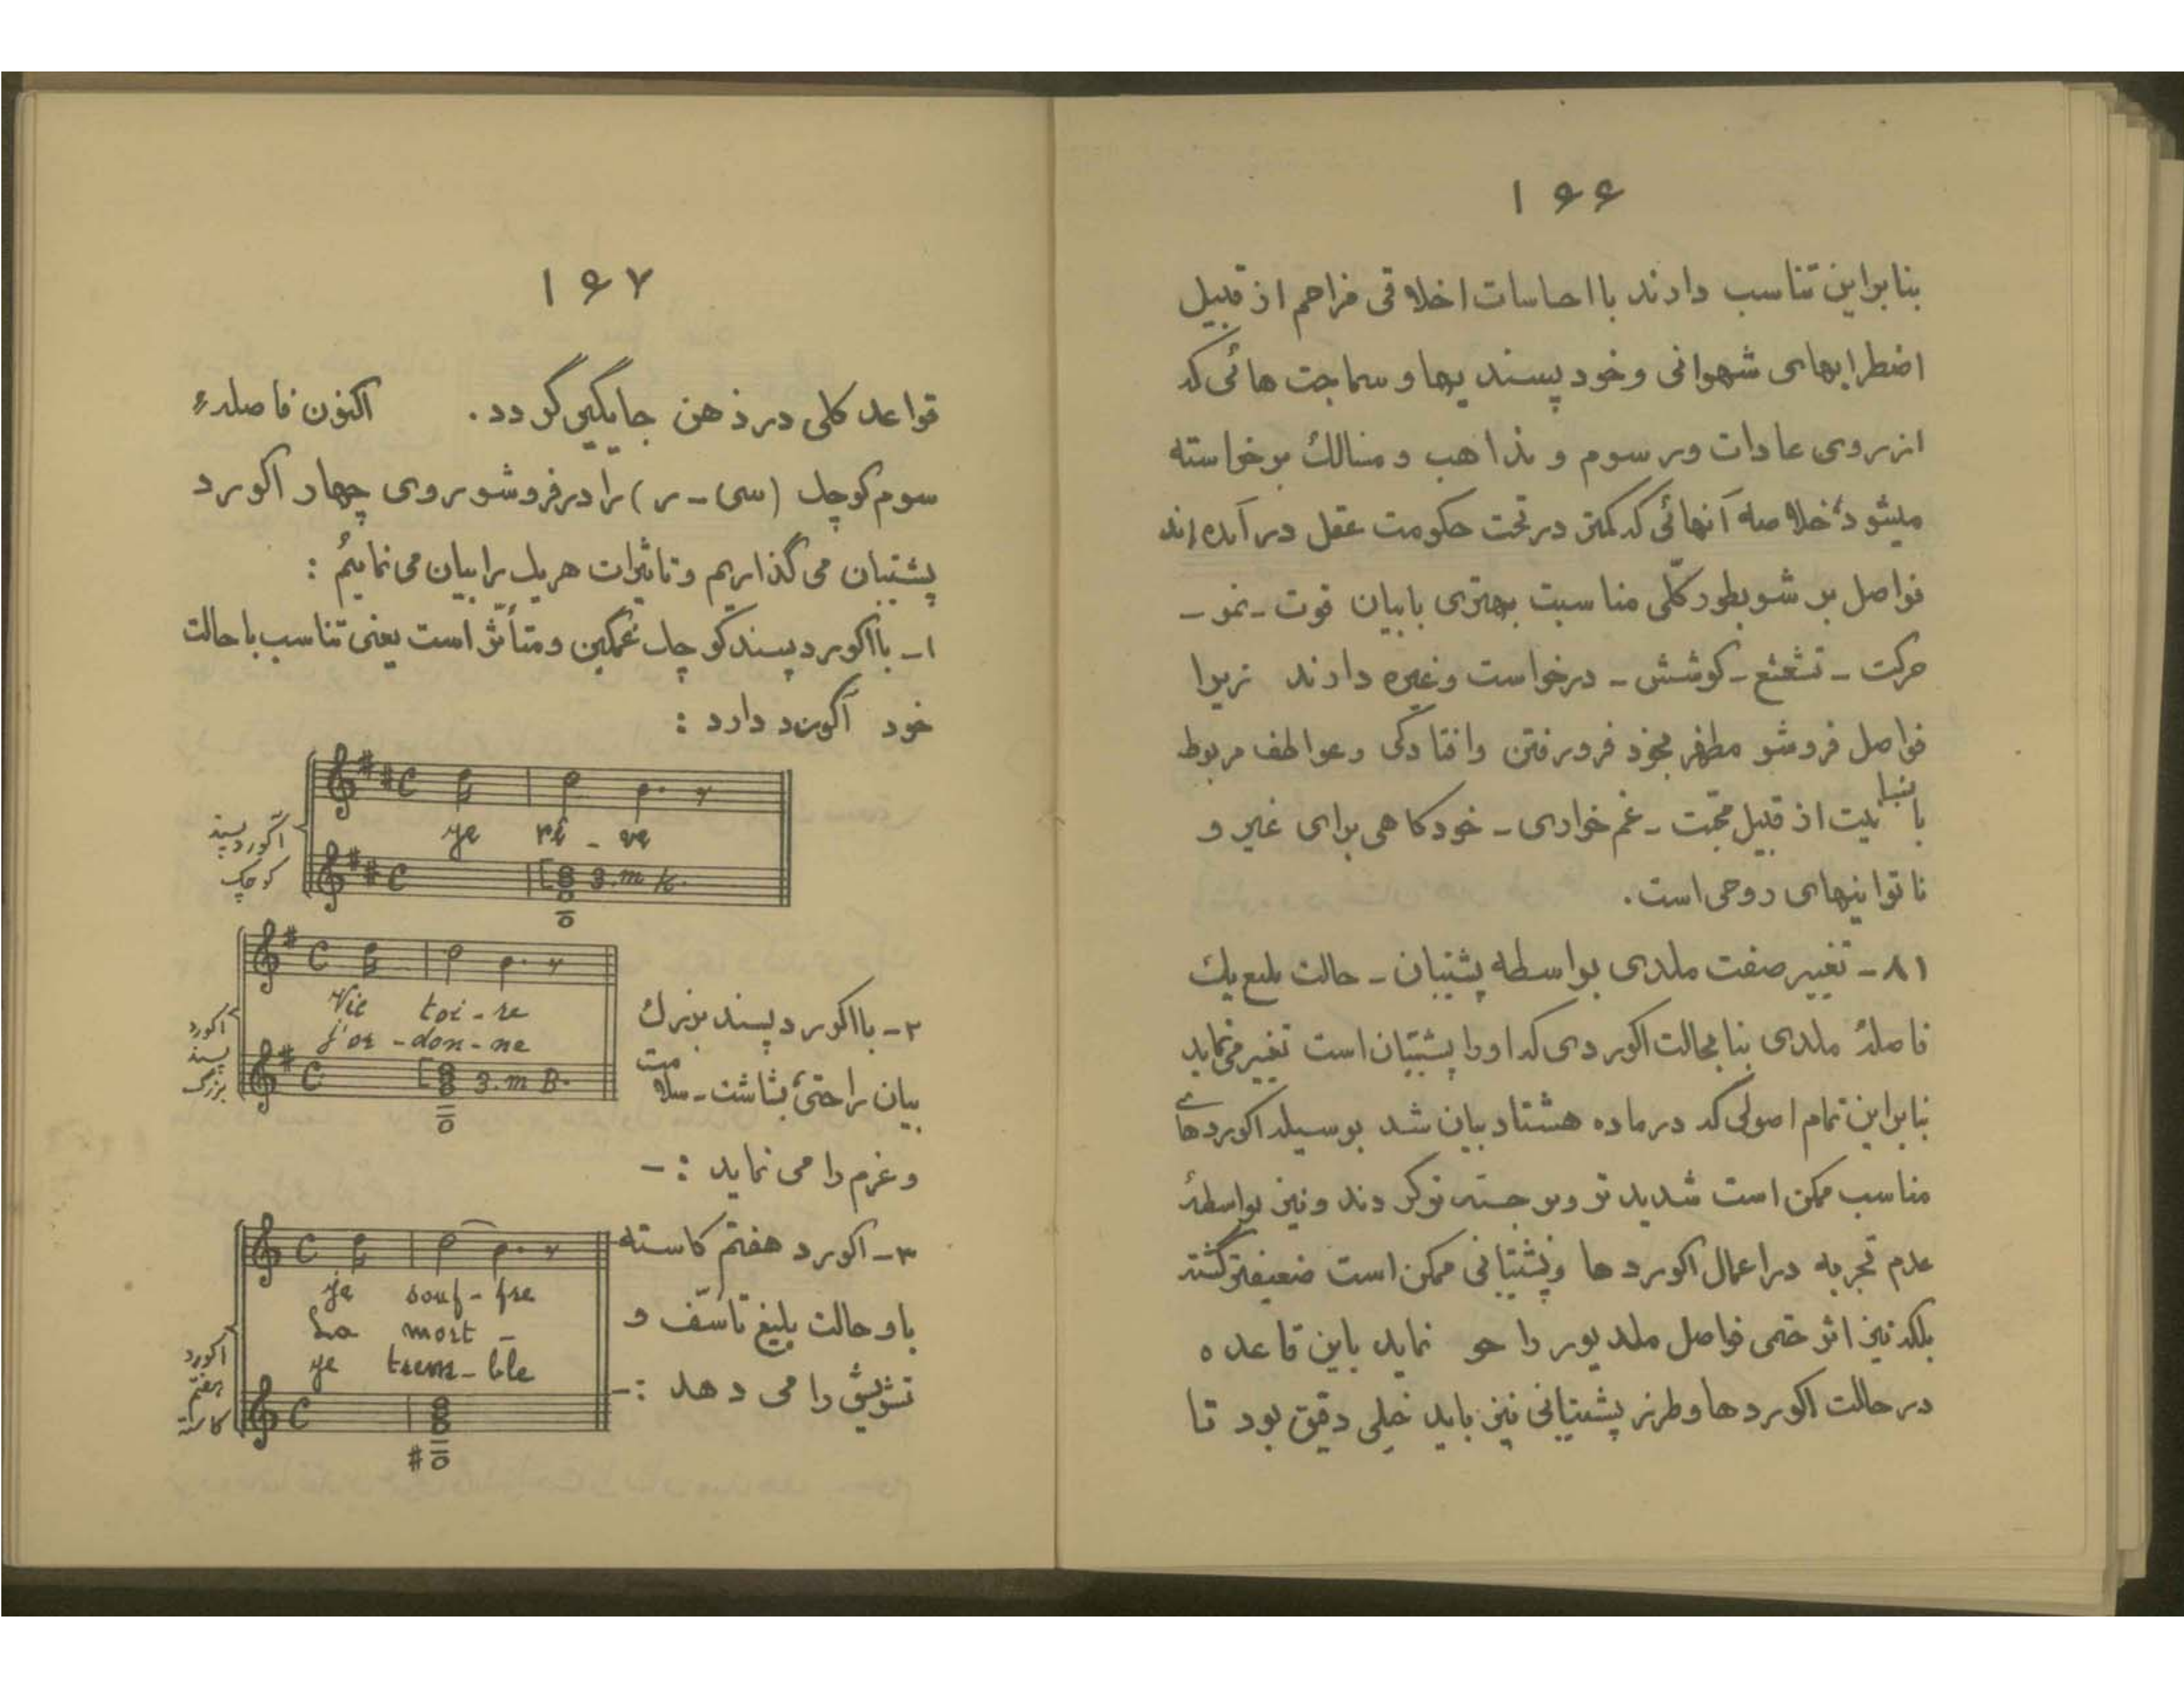 ۱۶۶
بنابراین تناسب دارند با احساسات اخلاقی فراهم از قبیل
اضطرابهای شهوانی و خود پسندیها و سماجت هائی که
از روی عادات و رسوم و مذاهب و مسالک برخواسته
میشود، خلاصه آنهائی که کمتر در تحت حکومت عقل در آمده اند
فواصل بر شو بطور کلّی مناسبت بهتری با بیان قوت - نمو -
حرکت - تشعشع - کوشش - درخواست و غیره دارند زیرا
فواصل فروشو مظهر بخود فرورفتن و افتادگی و عواطف مربوط
بانسانیت از قبیل محّبت - غم خواری - خودکاهی برای غیر و
ناتوانیهای روحی است.
۸۱ - تغییر صفت ملدی بواسطه پشتیبان - حالت بلیغ یک
فاصلهٔ ملدی بنا بحالت اکوردی که او را پشتیبان است تغییر می نماید
بنابراین تمام اصولی که در ماده هشتاد بیان شد بوسیله اکوردهای
مناسب ممکن است شدید تر و برجسته تر گردند و نیز بواسطهٔ
عدم تجربه در اعمال اکوردها و پشتیبانی ممکن است ضعیفتر گشته
بلکه نیز اثر حتمی فواصل ملدیور را محو نماید باین قاعده
در حالت اکوردها و طرز پشتیبانی نیز باید خیلی دقیق بود تا
۱۶۷
قواعد کلی در ذهن جایگیر گردد. اکنون فاصلهٔ
سوم کوچک (سی - ر) را در فروشو روی چهار اکورد
پشتیبان می گذاریم و تاثیرات هر یک را بیان می نمائیم :
۱ - با اکورد پسند کوچک غمگین و متأثّر است یعنی تناسب با حالت
خود آکورد دارد :
آکورد پسند
کوچک
C
ye rê - ve
C 3. m k.
۲ - با اکورد پسند بزرک
بیان راحتی، بشاشت - سلامت
و عزم را می نماید : -
اکورد
پسند
بزرگ
C
Vic toi - re
j'or - don - ne
C 3. m B.
۳ - اکورد هفتم کاسته
باو حالت بلیغ تاسّف و
تشویش را می دهد : -
اکورد
هفتم
کاسته
C
je souf - fre
La mort -
ye trem - ble
C